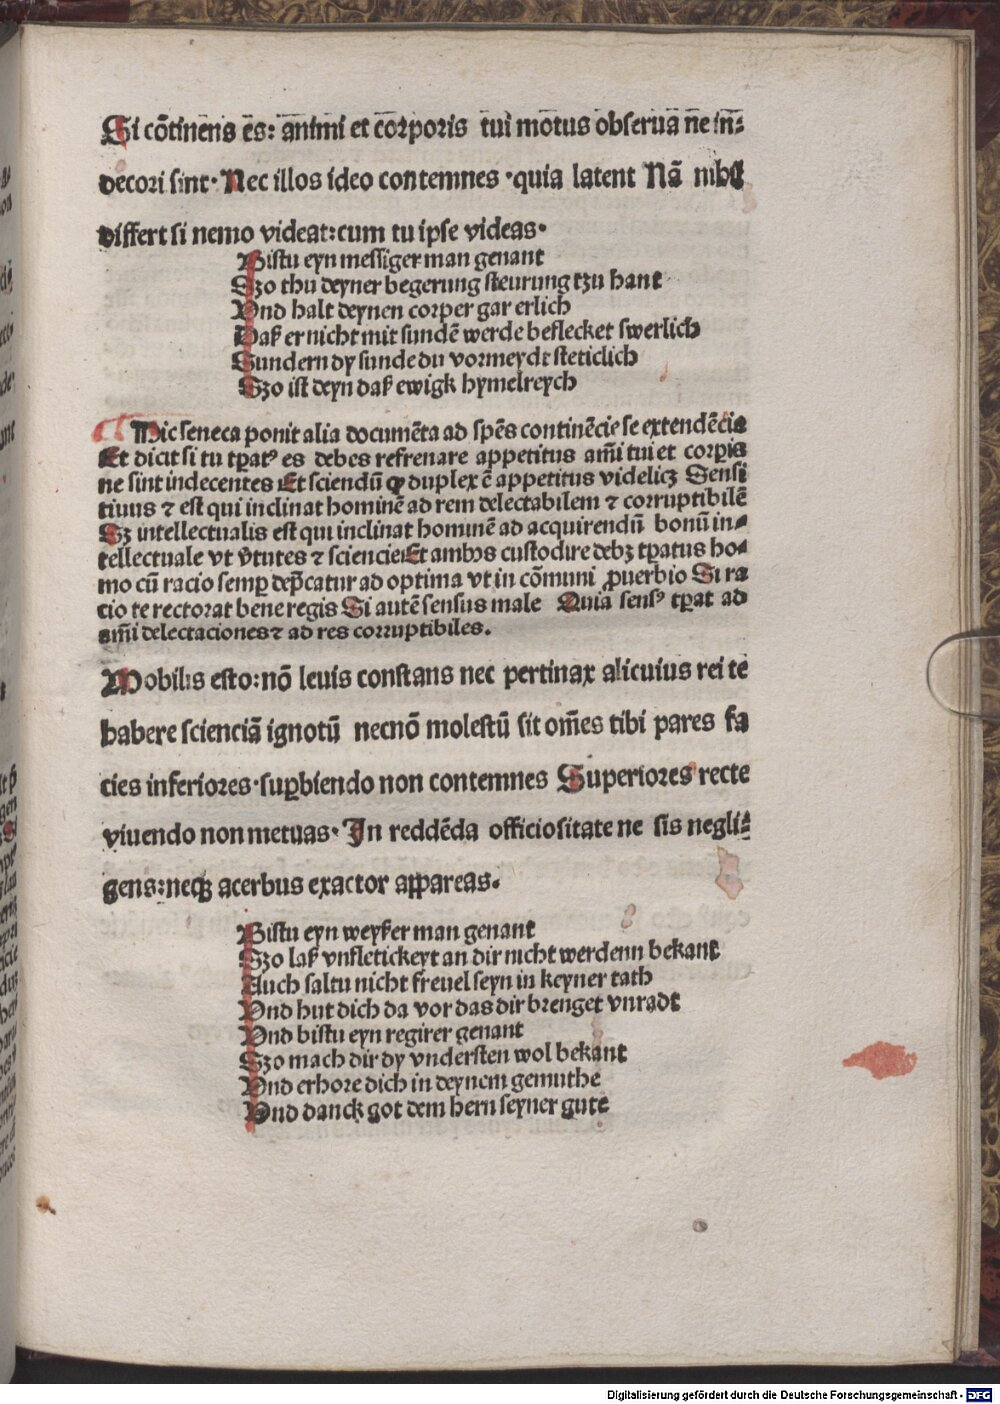 Si cõtinens es: animi et corporis tui motus obserua ne in⸗
decori sint· Nec illos ideo contemnes ·quia latent Nã nihil
differt si nemo videat: cum tu ipse videas·
Bistu eyn messiger man genant
Szo thu deyner begerung steurung tzu hant
Vnd halt deynen corper gar erlich
Daß er nicht mit sundẽ werde beflecket swerlich
Sundern dy sunde du vormeydt steticlich
Szo ist deyn daß ewigk hymelreych
Hic seneca ponit alia documẽta ad spẽs continẽcie se extendẽcia
Et dicit si tu tꝑatꝰ es debes refrenare appetitus aĩmi tui et corꝑis
ne sint indecentes Et sciendũ ꝙ duplex ẽ appetitus videlicꝫ Sensi
tiuus ⁊ est qui inclinat hominẽ ad rem delectabilem ⁊ corruptibilẽ
Sꝫ intellectualis est qui inclinat hominẽ ad acquirendũ bonũ in⸗
tellectuale vt v̓tutes ⁊ sciencie Et ambos custodire debꝫ tꝑatus ho⸗
mo cũ racio semꝑ dep̃catur ad optima vt in cõmuni ꝓuerbio Si ra
cio te rectorat bene regis Si autẽ sensus male Quia sensꝰ tꝑat ad
aĩmi delectaciones ⁊ ad res corruptibiles.
Mobilis esto: nõ leuis constans nec pertinax alicuius rei te
habere scienciã ignotũ necnõ molestũ sit om̃es tibi pares fa
cies inferiores·suꝑbiendo non contemnes Superiores recte
viuendo non metuas· In reddẽda officiositate ne sis negli⸗
gens: neqꝫ acerbus exactor appareas.
Bistu eyn weyßer man genant
Szo laß vnfletickeyt an dir nicht werdenn bekant
Auch saltu nicht freuel seyn in keyner tath
Vnd hut dich da vor das dir brenget vnradt
Vnd bistu eyn regirer genant
Szo mach dir dy vndersten wol bekant
Vnd erhore dich in deynem gemuthe
Vnd danck got dem hern seyner gute
Digitalisierung gefördert durch die Deutsche Forschungsgemeinschaft - DFG